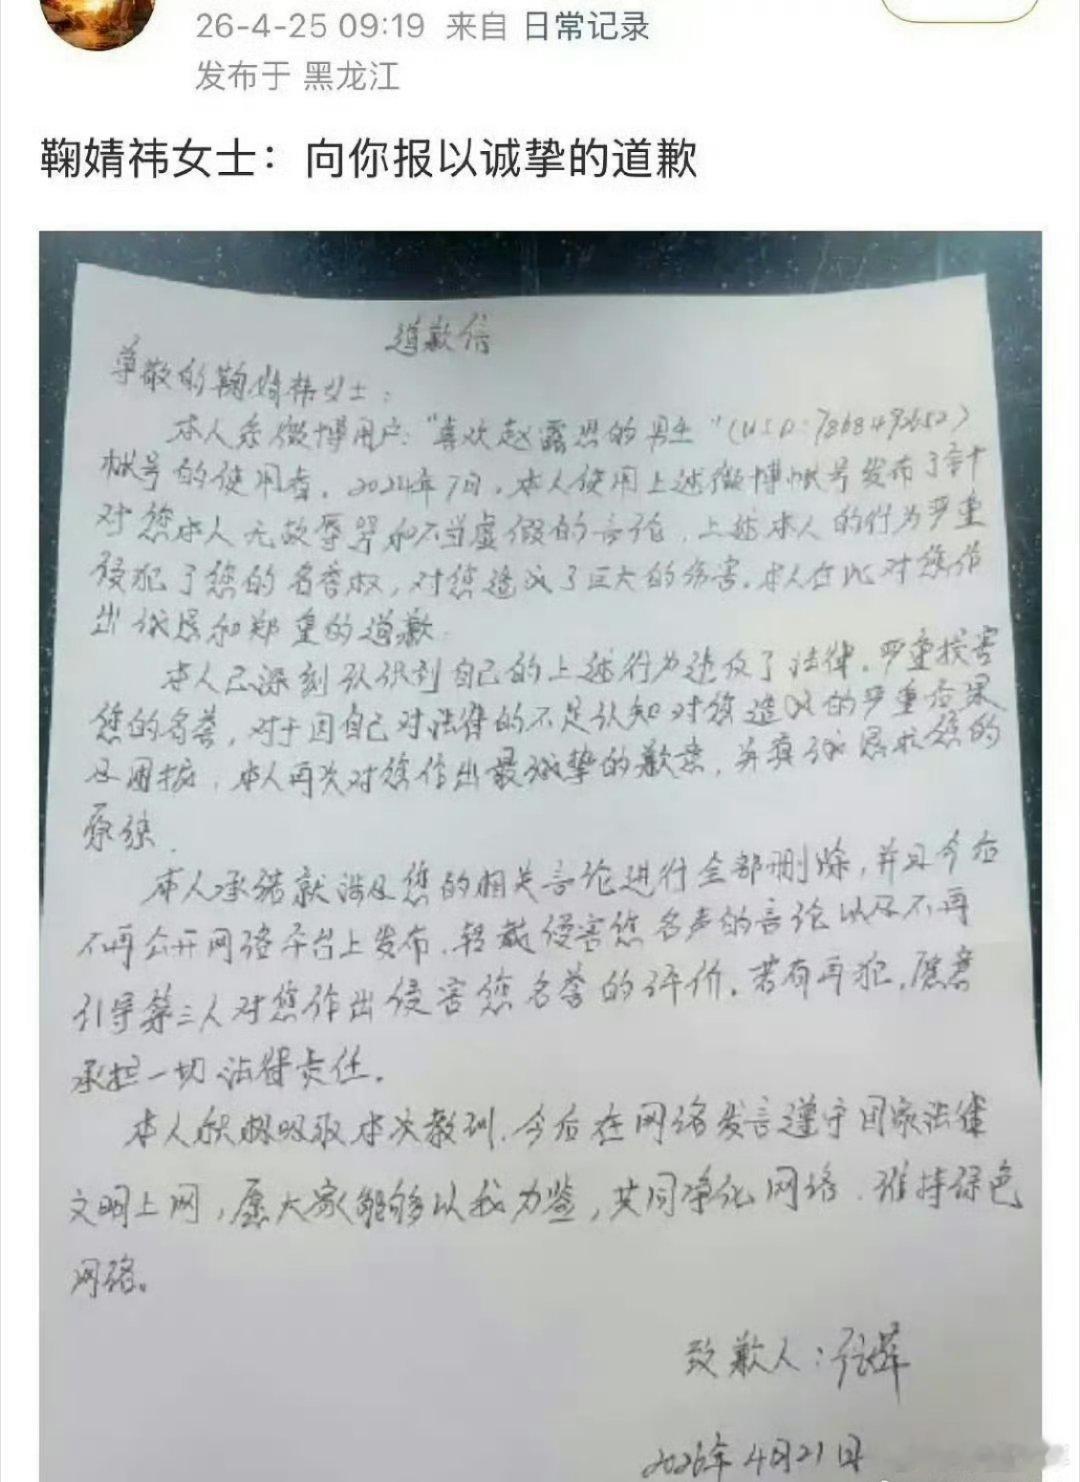 26-4-25 09:19 来自 日常记录
发布于 黑龙江
鞠婧祎女士：向你报以诚挚的道歉
道歉信
尊敬的鞠婧祎女士：
本人系微博用户："喜欢赵露思的男生"(UID:7868493652)
帐号的使用者。2024年7月，本人使用上述微博帐号发布了
对您本人无故辱骂和不当虚假的言论，上述本人的行为严重
侵犯了您的名誉权，对您造成了巨大的伤害。本人在此对您作
出诚恳和郑重的道歉
本人已深刻认识到自己的上述行为违反了法律，严重损害
您的名誉，对于因自己对法律的不足认知对您造成的严重后果
及困扰，本人再次对您作出最诚挚的歉意，并真诚恳求您的
原谅。
本人承诺就涉及您的相关言论进行全部删除，并且今后
不再公开网络平台上发布、转载侵害您名声的言论以及不再
引导第三人对您作出侵害您名誉的评价。若有再犯，愿意
承担一切法律责任。
本人积极吸取本次教训，今后在网络发言遵守国家法律
文明上网，愿大家能够以我为鉴，共同净化网络，维持绿色
网络。
致歉人：
2026年4月21日